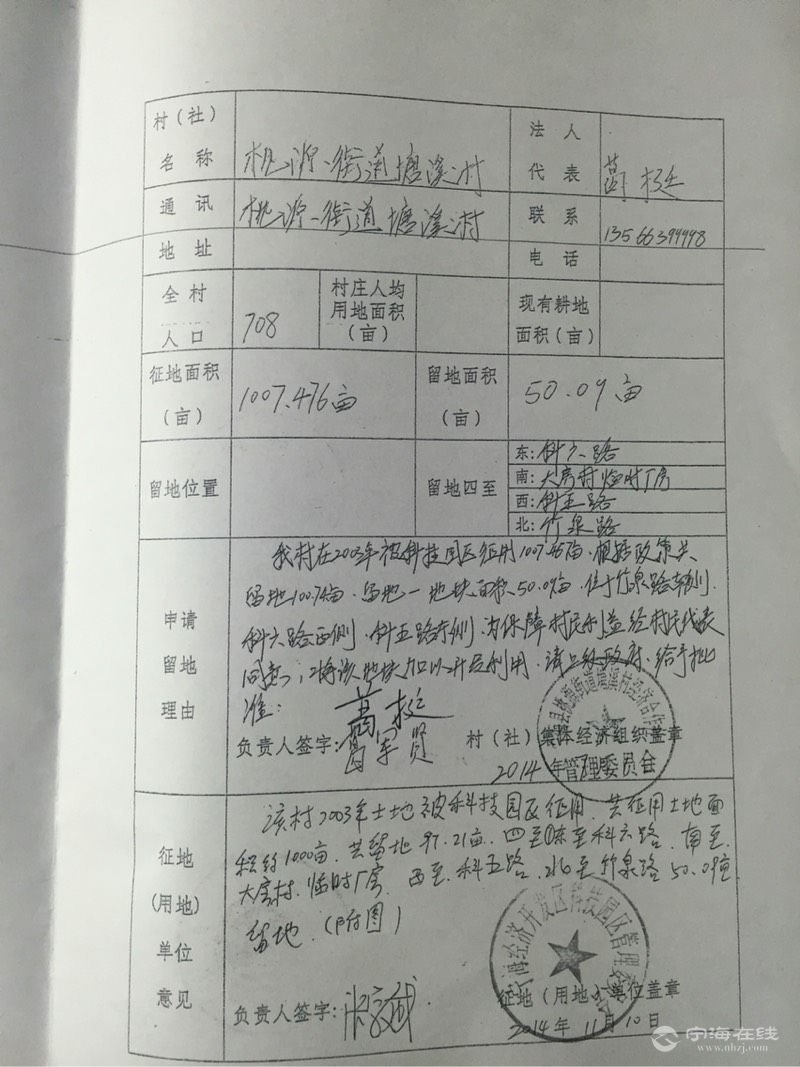 村（社）
名称
桃源街道塘溪村
法人
代表
葛挺
通讯
地址
桃源街道塘溪村
联系
电话
13566399998
全村
人口
708
村庄人均
用地面积
（亩）
现有耕地
面积（亩）
征地面积
（亩）
1007.476亩
留地面积
（亩）
50.09亩
留地位置
留地四至
东：科六路
南：大房村临时厂房
西：科五路
北：竹泉路
申请
留地
理由
我村在2003年被科技园区征用1007.46亩．根据政策共
留地100.74亩．留地一地块面积50.09亩．位于竹泉路南侧．
科六路西侧．科五路东侧．为保障村民利益经村民代表
同意，将该地块加以开发利用．请上级政府．给予批
准．
负责人签字：葛挺
葛军贤
村（社）集体经济组织盖章
县桃源街道塘溪村经济合作
管理委员会
2014年
征地
（用地）
单位
意见
该村2003年土地被科技园区征用．共征用土地面
积约1000亩．共留地97.21亩．四至东至科六路．南至
大房村．临时厂房．西至．科五路．北至竹泉路50.09亩
留地．（附图）
负责人签字：
征地（用地）单位盖章
宁海经济开发区科技园区管理委
2014年11月10日
宁海在线
www.nhzj.com